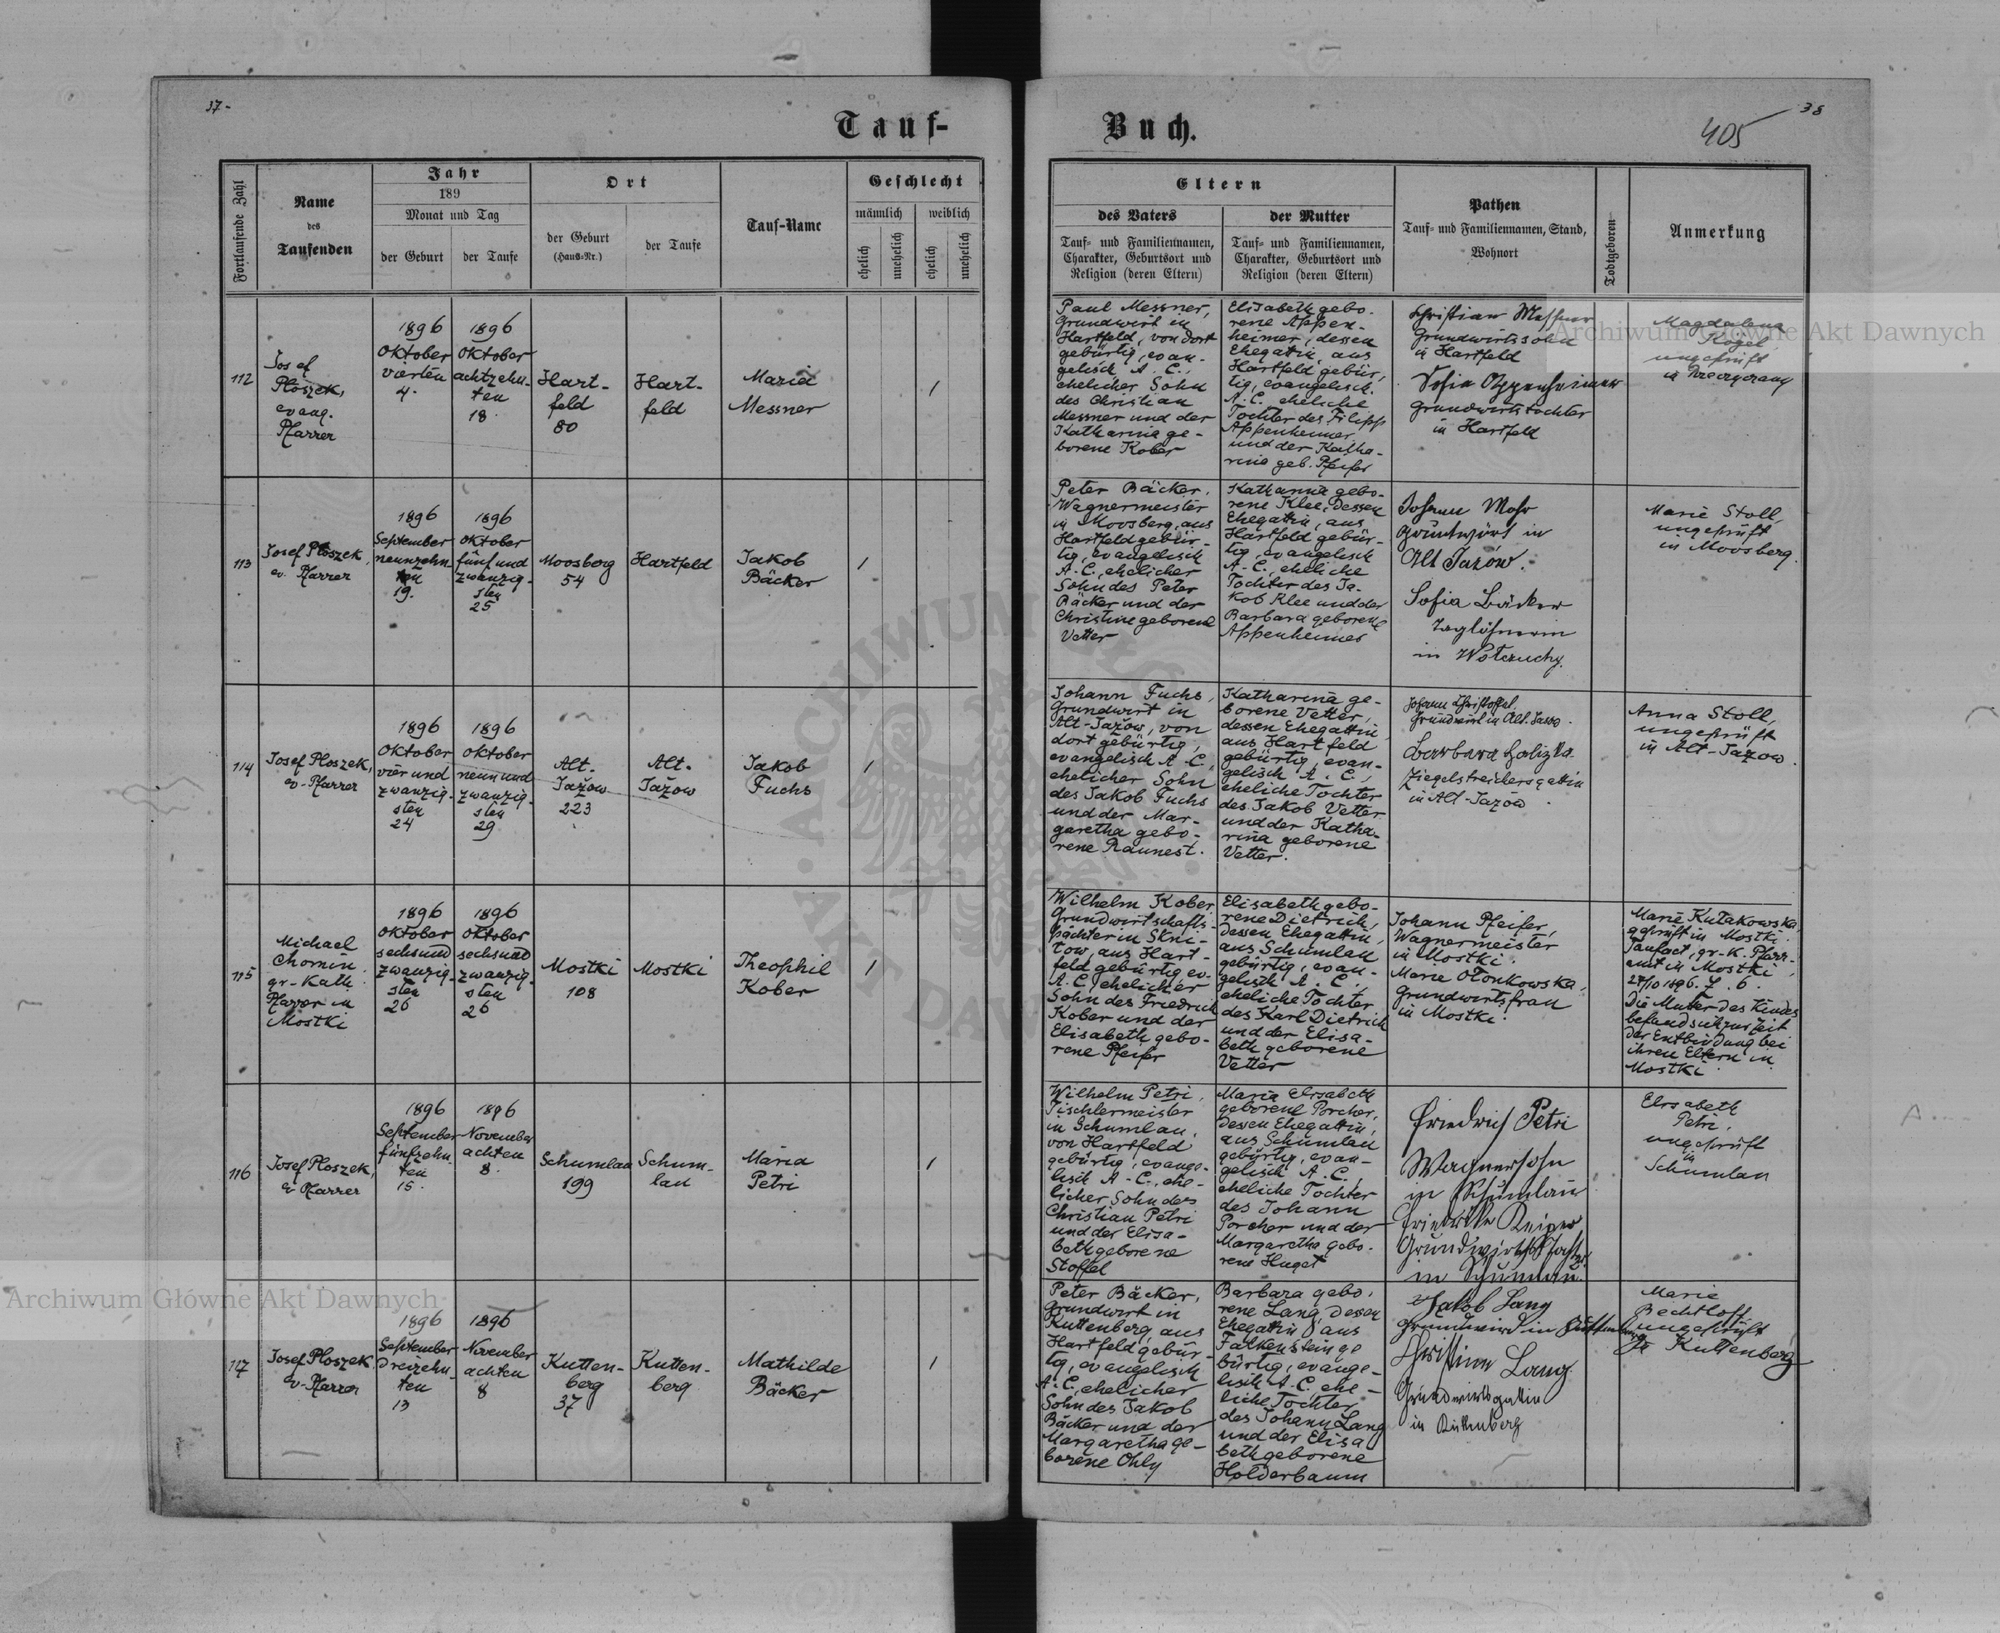 37-
38
405
Tauf-
Buch.
Fortlaufende Zahl
Name
des
Taufenden
Jahr
189
Monat und Tag
der Geburt
der Taufe
Ort
der Geburt
(Haus=Nr.)
der Taufe
Tauf=Name
Geschlecht
männlich
weiblich
ehelich
unehelich
ehelich
unehelich
Eltern
des Vaters
Tauf= und Familiennamen,
Charakter, Geburtsort und
Religion (deren Eltern)
der Mutter
Tauf= und Familiennamen,
Charakter, Geburtsort und
Religion (deren Eltern)
Pathen
Tauf= und Familiennamen, Stand,
Wohnort
Todtgeboren
Anmerkung
112
Josef
Ploszek,
evang.
Pfarrer
1896
Oktober
vierten
4.
1896
Oktober
achtzehn-
ten
18.
Hart-
feld
80
Hart-
feld
Maria
Messner
1
Paul Messner,
Grundwirt in
Hartfeld, von dort
gebürtig, evan-
gelisch A. C.,
ehelicher Sohn
des Christian
Messner und der
Katharina ge-
borene Kober
Elisabeth gebo-
rene Appen-
heimer, dessen
Ehegattin, aus
Hartfeld gebür-
tig, evangelisch
A. C. eheliche
Tochter des Filipp
Appenheimer
und der Katha-
rina geb. Pfeifer
Christian Messner
Grundwirtssohn
in Hartfeld
Sofia Oppenheimer
Grundwirtstochter
in Hartfeld
Magdalena
Kogel
ungeprüft
in
113
Josef Ploszek,
ev. Pfarrer
1896
September
neunzehn-
ten
19.
1896
Oktober
fünf und
zwanzig-
sten
25
Moosberg
54
Hartfeld
Jakob
Bäcker
1
Peter Bäcker,
Wagnermeister
in Moosberg, aus
Hartfeld gebür-
tig, evangelisch
A. C., ehelicher
Sohn des Peter
Bäcker und der
Christine geborene
Vetter
Katharina gebo-
rene Klee, dessen
Ehegattin, aus
Hartfeld gebür-
tig, evangelisch
A. C., eheliche
Tochter des Ja-
kob Klee und der
Barbara geborene
Appenheimer
Johann Mohr
Grundwirt in
Alt Jazów.
Sofia Bäcker
Taglöhnerin
in
Marie Stoll,
ungeprüft
in Moosberg.
114
Josef Ploszek,
ev. Pfarrer
1896
Oktober
vier und
zwanzig-
sten
24
1896
Oktober
neun und
zwanzig-
sten
29.
Alt-
Jažow
223
Alt-
Jažow
Jakob
Fuchs
1
Johann Fuchs,
Grundwirt in
Alt-Jažow, von
dort gebürtig,
evangelisch A. C.,
ehelicher Sohn
des Jakob Fuchs
und der Mar-
garetha gebo-
rene Raunest.
Katharina ge-
borene Vetter,
dessen Ehegattin,
aus Hartfeld
gebürtig, evan-
gelisch A. C.,
eheliche Tochter
des Jakob Vetter
und der Katha-
rina geborene
Vetter.
Johann Christoffel
Grundwirt in Alt-Jazow.
Barbara
Ziegelstreichersgattin
in Alt-Jazów.
Anna Stoll,
ungeprüft
in Alt-Jazow
115
Michael
Chomin
gr-Kath.
Pfarrer in
Mostki
1896
Oktober
sechsund
zwanzig-
sten
26
1896
Oktober
sechsund
zwanzig-
sten
26
Mostki
108
Mostki
Theophil
Kober
1
Wilhelm Kober
Grundwirtschafts-
pächter in Skni-
low, aus Hart-
feld gebürtig ev.
A. C. ehelicher
Sohn des Friedrich
Kober und der
Elisabeth gebo-
rene Pfeifer
Elisabeth gebo-
rene Dietrich,
dessen Ehegattin,
aus Schumlau
gebürtig, evan-
gelisch A. C.,
eheliche Tochter
des Karl Dietrich
und der Elisa-
beth geborene
Vetter
Johann Pfeifer,
Wagnermeister
in Mostki.
Marie
Grundwirtsfrau
in Mostki.
Marie Kulakowska,
geprüft in Mostki.
Taufact, gr-K. Pfarr-
amt in Mostki
27/10 1896. Z. 6.
Die Mutter des Kindes
befand sich zur Zeit
der Entbindung bei
ihren Eltern in
Mostki.
116
Josef Ploszek,
ev Pfarrer
1896
September
fünfzehn-
ten
15.
1896
November
achten
8.
Schumlau
199
Schum-
lau
Maria
Petri
1
Wilhelm Petri,
Tischlermeister
in Schumlau,
von Hartfeld
gebürtig, evange-
lisch A. C., ehe-
licher Sohn des
Christian Petri
und der Elisa-
beth geborene
Stoffel
Maria Elisabeth
geborene Porcher,
dessen Ehegattin,
aus Schumlau
gebürtig, evan-
gelisch A. C.,
eheliche Tochter
des Johann
Porcher und der
Margaretha gebo-
rene Huget
Friedrich Petri
Wagnersohn
in Schumlau
Friedrike
Grundwirts Tochter
in Schumlau.
Elisabeth
Petri,
ungeprüft
in
Schumlau
117
Josef Ploszek
ev-Pfarrer
1896
September
dreizehn-
ten
13
1896
November
achten
8
Kutten-
berg
37
Kutten-
berg
Mathilde
Bäcker
1
Peter Bäcker,
Grundwirt in
Kuttenberg, aus
Hartfeld gebür-
tig, evangelisch
A. C., ehelicher
Sohn des Jakob
Bäcker und der
Margaretha ge-
borene Ohly
Barbara gebo-
rene Lang, dessen
Ehegattin, aus
Falkenstein ge
bürtig, evange-
lisch A. C., ehe-
liche Tochter
des Johann Lang
und der Elisa
beth geborene
Holderbaum
Jakob Lang
Grundwirt in Kuttenberg
Christine Lang
Grundwirtsgattin
in Kuttenberg
Marie
Bechtloff
ungeprüft
in Kuttenberg
Archiwum Główne Akt Dawnych
Archiwum Główne Akt Dawnych